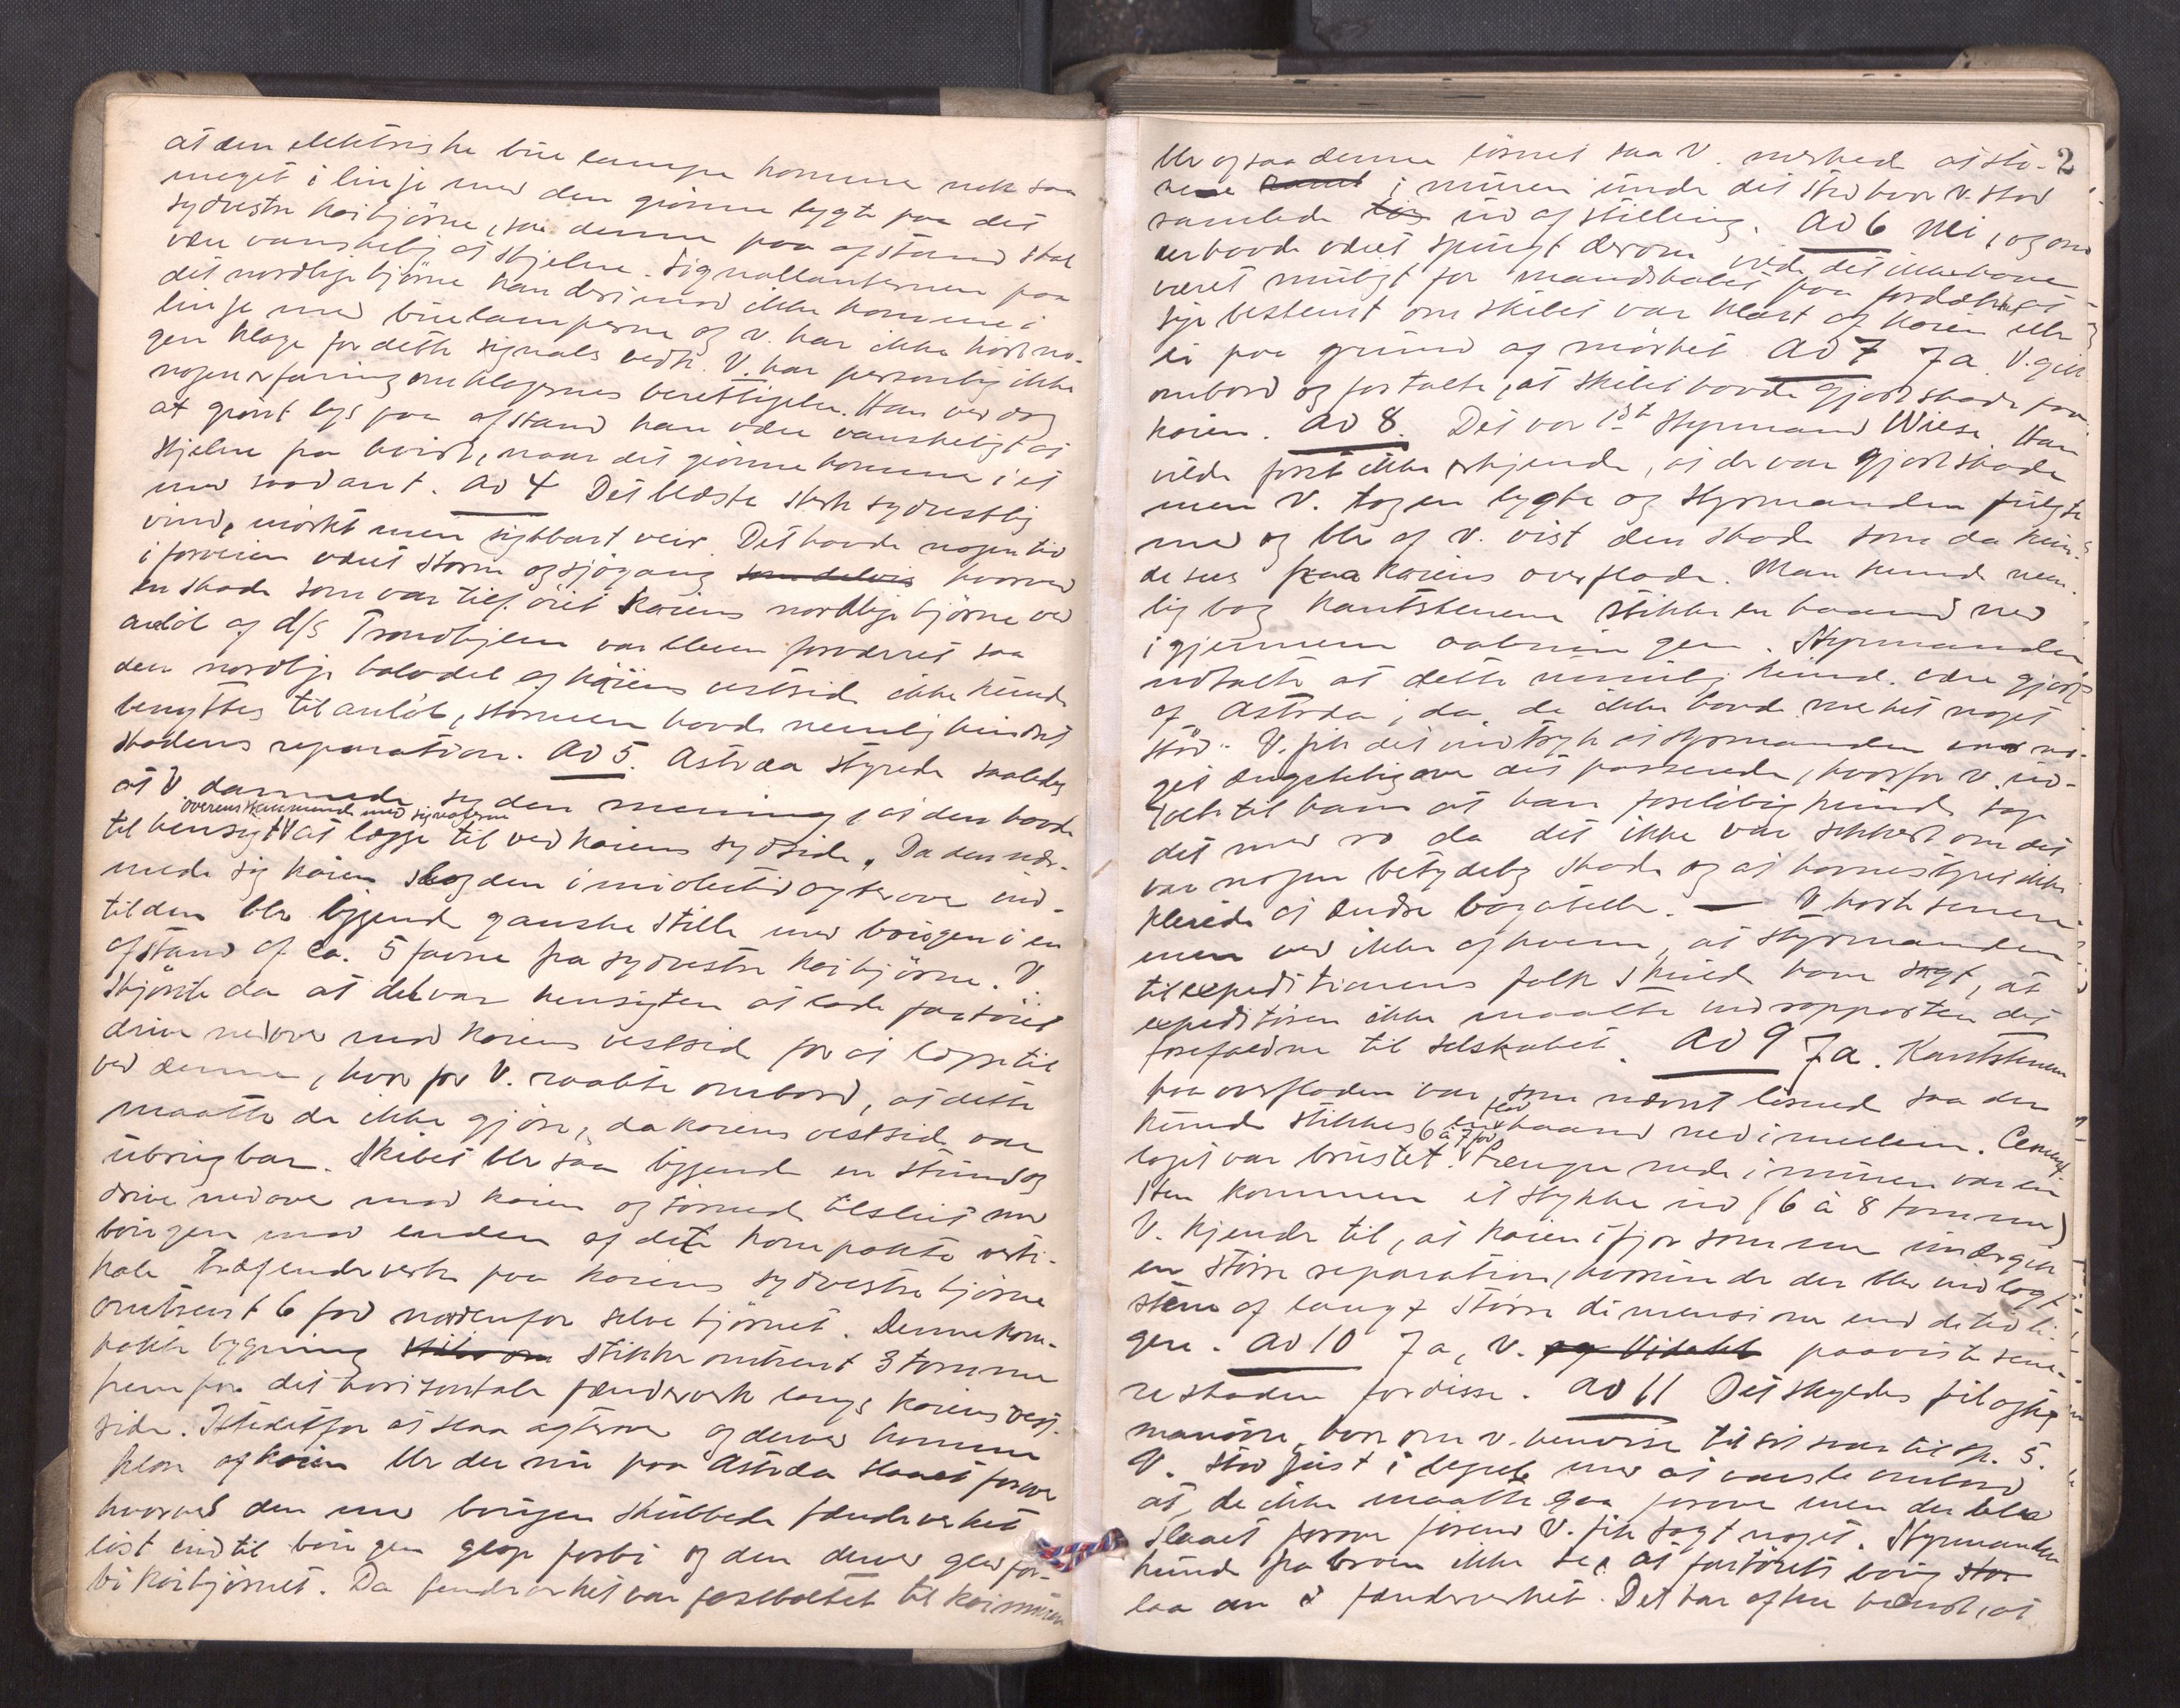 at den elektriske buelampe komme nok saa
meget i linje med den grönne lygte paa det
sydvestre kaihjörne, saa denne paa afstand skal
være vanskelig at skjelne. Signallanternen paa
det nordlige hjörne kan derimod ikke komme i
linje med buelamperne og V. har ikke hört no-
gen klage for dette signals vedk. V. har personlig ikke
nogen erfaring om klagernes berettigelse. Han ved dog
at grönt lys paa afstand kan være vanskeligt at
skjelne fra hvidt, naar det grönne komme i et
med saadant. Ad 4 Det blæste sterk sydvestlig
vind, mörkt men sigtbart veir. Det havde nogen tid
i forveien været storm og sjögang som delvis hvorved
en skade som var tilföiet kaiens nordlige hjörne ved
anlöb af d/s Trondhjem var bleven forværret saa
den nordlige halvdel af kaiens vestside ikke kunde
benyttes til anlöb, stormen havde nemlig hindret
skadens reparation. Ad 5. Astræa styrede saaledes
at V. dannede sig den mening, at den havde
overensstemmende med signalerne
til hensigt V at lægge til ved kaiens sydside. Da den nær-
mede sig kaien slog den imidlertid agterover ind-
til den blev liggende ganske stille med bougen i en
afstand af ca. 5 favne fra sydvestre kaihjörne. V.
skjönte da at det var hensigten at lade fartöiet
drive nedover mod kaiens vestside for at lægge til
ved denne, hvorfor V. raabte ombord, at dette
maatte de ikke gjöre, da kaiens vestside var
ubrugbar. Skibet blev saa liggende en stund og
drive nedover mod kaien og törned tilslut med
bougen mod enden af dette kompakte verti-
kale træfenderverk paa kaiens sydvestre hjörne
omtrent 6 fod nordenfor selve hjörnet. Denne kom-
pakte bygning stikker omtrent 3 tomme
frem for det horisontale fenderverk langs kaiens vest-
side. Istedetfor at slaa agterover og derved komme
klar af kaien blev der nu paa Astræa slaaet forover
hvorved den med bougen skubbede fenderverket
löst indtil bougen glap forbi og den derved gled for-
bi kaihjörnet. Da fenderverket var fastboltet til kaimuren
2
blev ogsaa denne lösnet saa V. merkede at ste-
nene ramt i muren under det sted hvor V. stod
ramlede ud af stilling. Ad 6 Nei, og om
der havde været spurgt derom vilde det ikke have
været muligt for mandskabet paa fordækket at
sige bestemt om skibet var klart af kaien eller
ei paa grund af mörket. Ad 7 Ja. V. gik
ombord og fortalte, at skibet havde gjort skade paa
kaien. Ad 8. Det var 1ste Styrmand Wiese. Han
vilde först ikke erkjende, at der var gjort skade
men V. tog en lygte og Styrmanden fulgte
med og blev af V. vist den skade som da kun-
de sees paa kaiens overflade. Man kunde nem-
lig bag kantstenene stikke en haand ned
igjennem aabningen. Styrmanden
udtalte at dette umulig kunde være gjort
af Astræa, da de ikke havde merket noget
stöd. V. fik det indtryk at styrmanden var no-
get ængstelig over det passerede, hvorfor V. ud-
talte til ham at han foreløbig kunde tage
det med ro da det ikke var sikkert om det
var nogen betydelig skade og at havnestyret ikke
pleiede at ændse bagateller. — V. hørte senere
men ved ikke af hvem, at styrmanden
til expeditionens folk skulde have sagt, at
expeditören ikke maatte indrapportere det
forefaldne til selskabet. Ad 9 Ja. Kantstenene
paa overfladen var som nævnt lösnede saa der
kunde stikkes en haand ned imellem. Cement-
6 à 7 fod
laget var brustet. V Længer nede i muren var en
sten kommen et stykke ud (6 à 8 tomme)
V. kjender til, at kaien ifjor sommer undergik
en större reparation, hvorunder der blev indlagt
stene af langt större dimensioner end de tidli-
gere. Ad 10 Ja, V. og Vidahl paaviste sene-
re skaden for disse. Ad 11 Det skyldes feilagtig
manövre, hvorom V. henviser til sit svar til sp. 5.
V. stod just i begreb med at varsle ombord
at de ikke maatte gaa forover men der blev
slaaet forover förend V. fik sagt noget. Styrmanden
kunde fra broen ikke se, at fartöiets boug stod
laa an i fenderverket. Det har ofte hændt, at